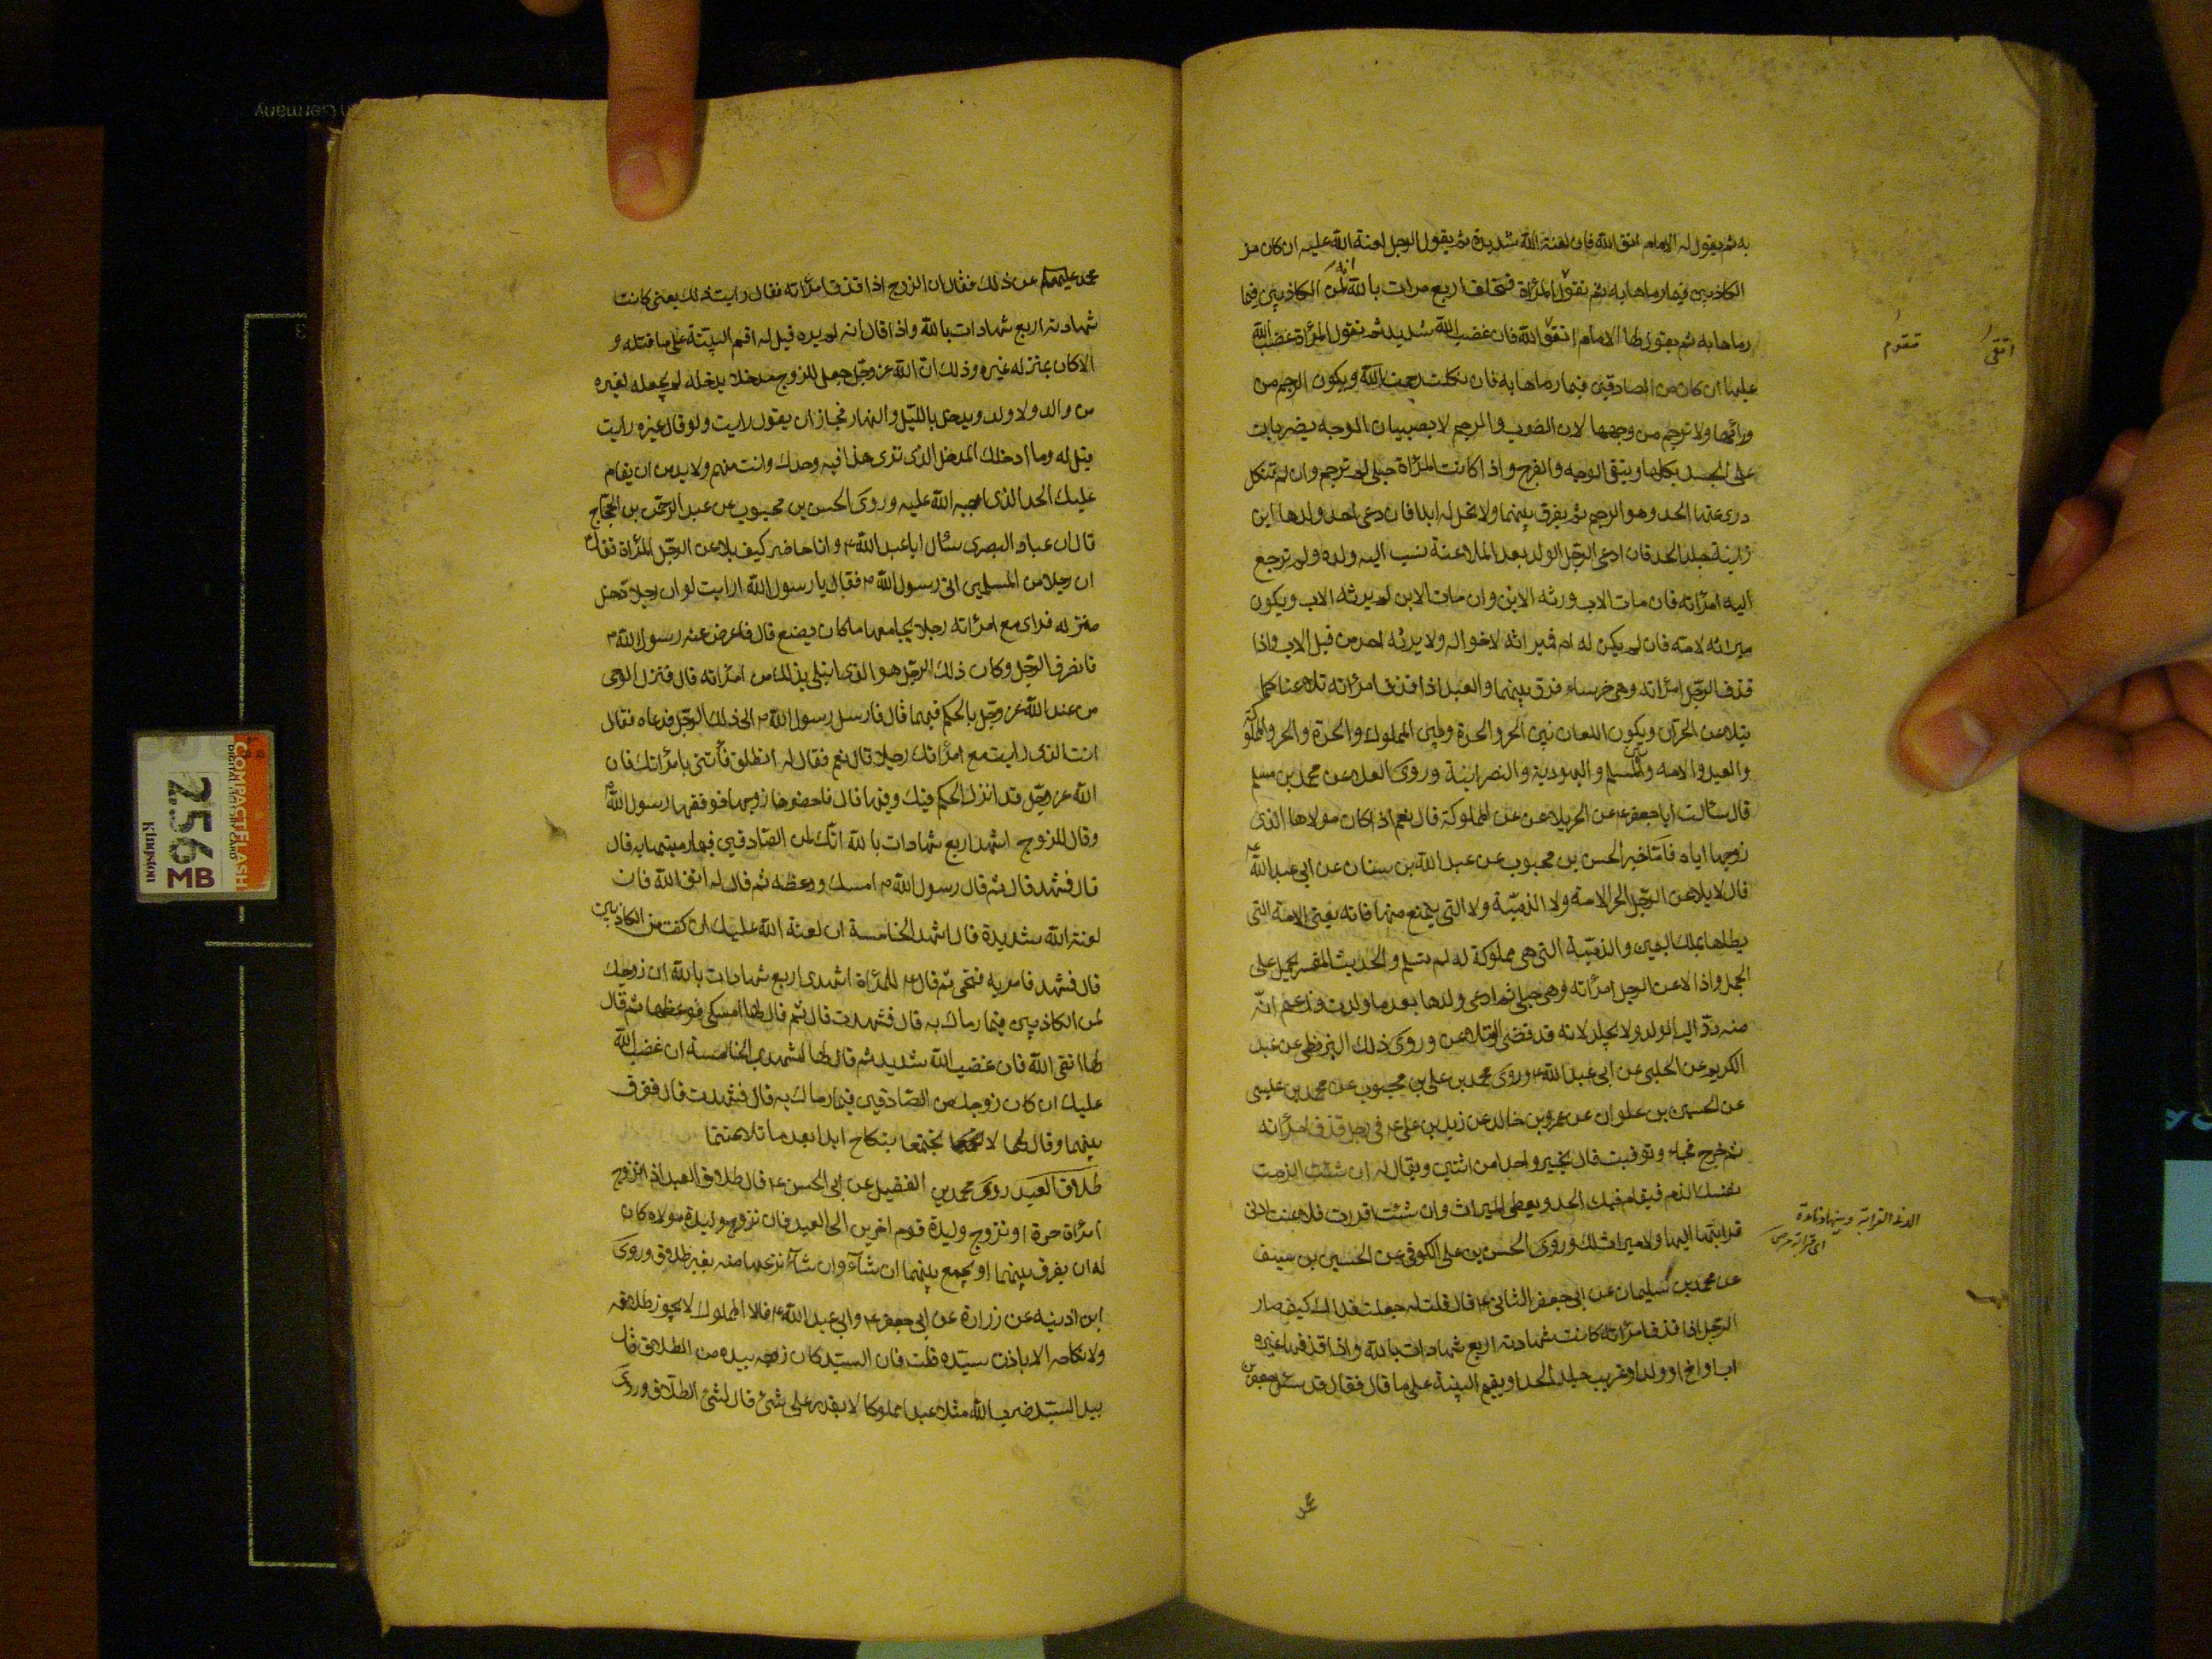 به ثم يقول له الامام اتق الله فان لعنة الله شديدة ثم يقول الرجل لعنة الله عليه ان كان من
الكاذبين فيما رماها به ثم تقول المرأة فتحلف اربع مرات بالله انه لمن الكاذبين فيما
رماها به ثم يقول لها الامام اتقى الله فان غضب الله شديد ثم تقول المرأة غضب الله
عليها ان كان من الصادقين فيما رماها به فان نكلت رجمت ويكون الرجم من
ورائها ولا ترجم من وجهها لان الضرب والرجم لا يصيبان الوجه يضربان
على الجسد كلها ويتقى الوجه والفرج واذا كانت المرأة حبلى لم ترجم وان لم تنكل
درئ عنها الحد وهو الرجم ثم يفرق بينهما ولا تحل له ابدا فان دعى احد ولدها ابن
زانية جلد الحد فان ادعى الرجل الولد بعد الملاعنة نسب اليه ولده ولم ترجع
اليه امرأته فان مات الاب ورثه الابن وان مات الابن لم يرثه الاب ويكون
ميراثه لامه فان لم يكن له ام فميراثه لاخواله ولا يرثه احد من قبل الاب واذا
قذف الرجل امرأته وهى خرساء فرق بينهما والعبد اذا قذف امرأته تلاعنا كما
يتلاعن الحران ويكون اللعان بين الحر والحرة وبين المملوك والحرة والحر والمملوكة
والعبد والامة وبين المسلم واليهودية والنصرانية وروى العلا عن محمد بن مسلم
قال سألت ابا جعفر ع عن الحر يلاعن المملوكة قال نعم اذا كان مولاها الذى
زوجها اياه فاما خبر الحسن بن محبوب عن عبد الله بن سنان عن ابى عبد الله ع
قال لا يلاعن الرجل الحر الامة ولا الذمية ولا التى يتمتع منها فانه يعنى الامة التى
يطاها بملك اليمين والذمية التى هى مملوكة له لم تسلم والحديث المفسر يحمل على
المجمل واذا لاعن الرجل امرأته وهى حبلى ثم ادعى ولدها بعد ما ولدت وزعم انه
منه رد اليه الولد ولا يجلد لانه قد قضى التلاعن وروى ذلك البزنطى عن عبد
الكريم عن الحلبى عن ابى عبد الله ع وروى محمد بن على بن محبوب عن محمد بن عيسى
عن الحسين بن علوان عن عمرو بن خالد عن زيد بن على ع فى رجل قذف امرأته
ثم خرج فجاء وتوفيت قال يخير واحدا من اثنين ويقال له ان شئت الزمت
نفسك الذنب فيقام فيك الحد ويعطى الميراث وان شئت اقررت فلاعنت ادنى
قرابتها اليها ولا ميراث لك وروى الحسن بن على الكوفى عن الحسين بن سيف
عن محمد بن سليمان عن ابى جعفر الثانى ع قال قلت له جعلت فداك كيف صار
الرجل اذا قذف امرأته كانت شهادته اربع شهادات بالله واذا قذفها غيره
اب او اخ او ولد او غريب جلد الحد او يقيم البينة على ما قال فقال قد سئل جعفر بن
اتقى
فتقوم
محمد عليهما عن ذلك فقال ان الزوج اذا قذف امرأته فقال رايت ذلك بعينى كانت
شهادته اربع شهادات بالله واذا قال انه لم يره قيل له اقم البينة على ما قلته و
الا كان بمنزلة غيره وذلك ان الله عز وجل جعل للزوج مدخلا يدخله لم يجعله لغيره
من والد ولا ولد ويدخل بالليل والنهار فجاز ان يقول رايت ولو قال غيره رايت
قيل له وما ادخلك المدخل الذى ترى هذا فيه وحدك وانت متهم ولا بد من ان يقام
عليك الحد الذى اوجبه الله عليه وروى الحسن بن محبوب عن عبد الرحمن بن الحجاج
قال ان عباد البصرى سئال ابا عبد الله ع وانا حاضر كيف يلاعن الرجل المرأة فقال
ان رجلا من المسلمين اتى رسول الله ص فقال يا رسول الله ارايت لو ان رجلا دخل
منزله فراى مع امرأته رجلا يجامعها ما كان يصنع قال فاعرض عنه رسول الله ص
فانصرف الرجل وكان ذلك الرجل هو الذى ابتلى بذلك من امرأته قال فنزل الوحى
من عند الله عز وجل بالحكم فيهما قال فارسل رسول الله ص الى ذلك الرجل فدعاه فقال
انت الذى رايت مع امرأتك رجلا قال نعم فقال له انطلق فأتنى بامرأتك فان
الله عز وجل قد انزل الحكم فيك وفيها قال فاحضرها زوجها فوقفها رسول الله
وقال للزوج اشهد اربع شهادات بالله انك لمن الصادقين فيما رميتها به قال
قال فشهد قال ثم قال رسول الله ص امسك ووعظه ثم قال له اتق الله فان
لعنة الله شديدة قال اشهد الخامسة ان لعنة الله عليك ان كنت من الكاذبين
قال فشهد فامر به فنحى ثم قال ع للمرأة اشهدى اربع شهادات بالله ان زوجك
لمن الكاذبين فيما رماك به قال فشهدت قال ثم قال لها امسكى فوعظها ثم قال
لها اتقى الله فان غضب الله شديد ثم قال لها اشهدى الخامسة ان غضب الله
عليك ان كان زوجك من الصادقين فيما رماك به قال فشهدت قال ففرق
بينهما وقال لهما لا تجتمعا بنكاح ابدا بعد ما تلاعنتما
طلاق العبد روى محمد بن الفضيل عن ابى الحسن ع قال طلاق العبد اذا تزوج
امرأة حرة او تزوج وليدة قوم اخرين الى العبد فان تزوج وليدة مولاه كان
له ان يفرق بينهما او يجمع بينهما ان شآء وان شآء نزعها منه بغير طلاق وروى
ابن اذينه عن زرارة عن ابى جعفر ع وابى عبد الله ع قالا المملوك لا يجوز طلاقه
ولا نكاحه الا باذن سيده قلت فان السيد كان زوجه بيد من الطلاق قال
بيد السيد ضرب الله مثلا عبدا مملوكا لا يقدر على شئ قال لشئ الطلاق وروى
COMPACTFLASH
256
MB
Kingston
Germany